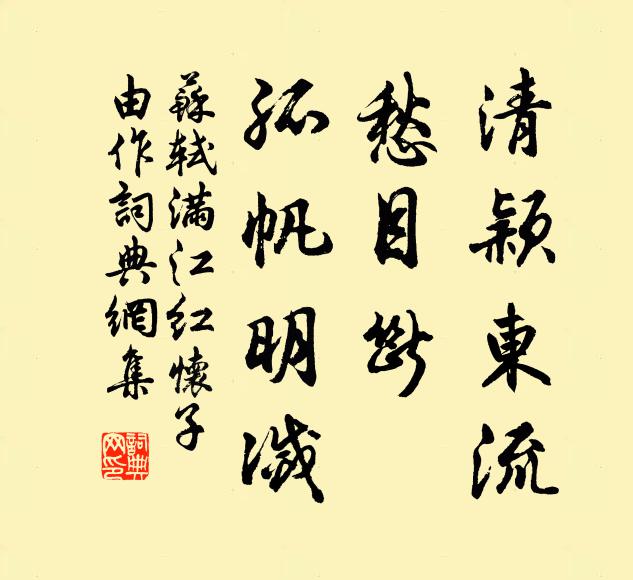 清潁東流
愁目斷
孤帆明滅
蘇軾滿江紅懷子
由作詞典網集
詞典
网印